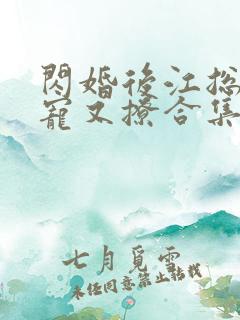 閃婚後江总
寵又撩合集
七月覓雲
未经同意禁止转载